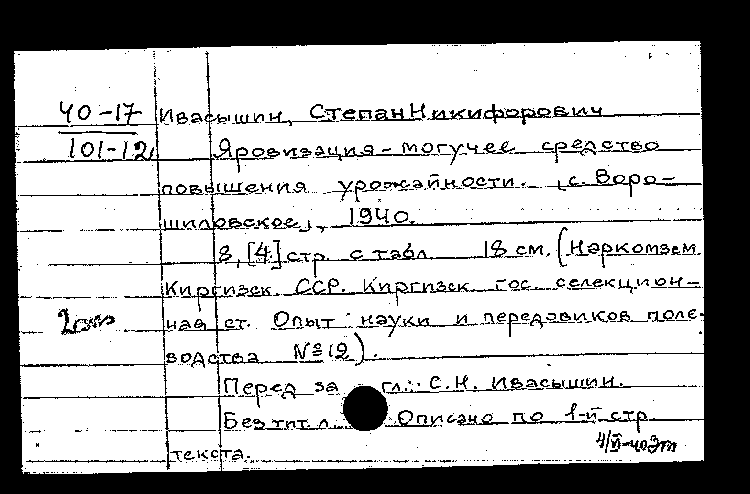 40-17 Ивасышин, Степан Никифорович
101-12 Яровизация - могучее средство
повышения урожайности. [с. Воро-
шиловское], 1940.
8, [4] стр. с табл. 18 см. (Наркомзем
Киргизск. ССР. Киргизск. гос. селекцион-
ная ст. Опыт науки и передовиков поле-
водства № 12).
Перед загл.: С.Н. Ивасышин.
Без тит. л. Описано по 1-й стр.
текста.